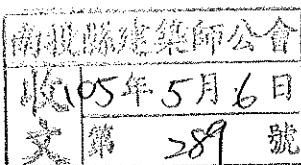 南投縣建築師公會
收105年5月6日
文第289號